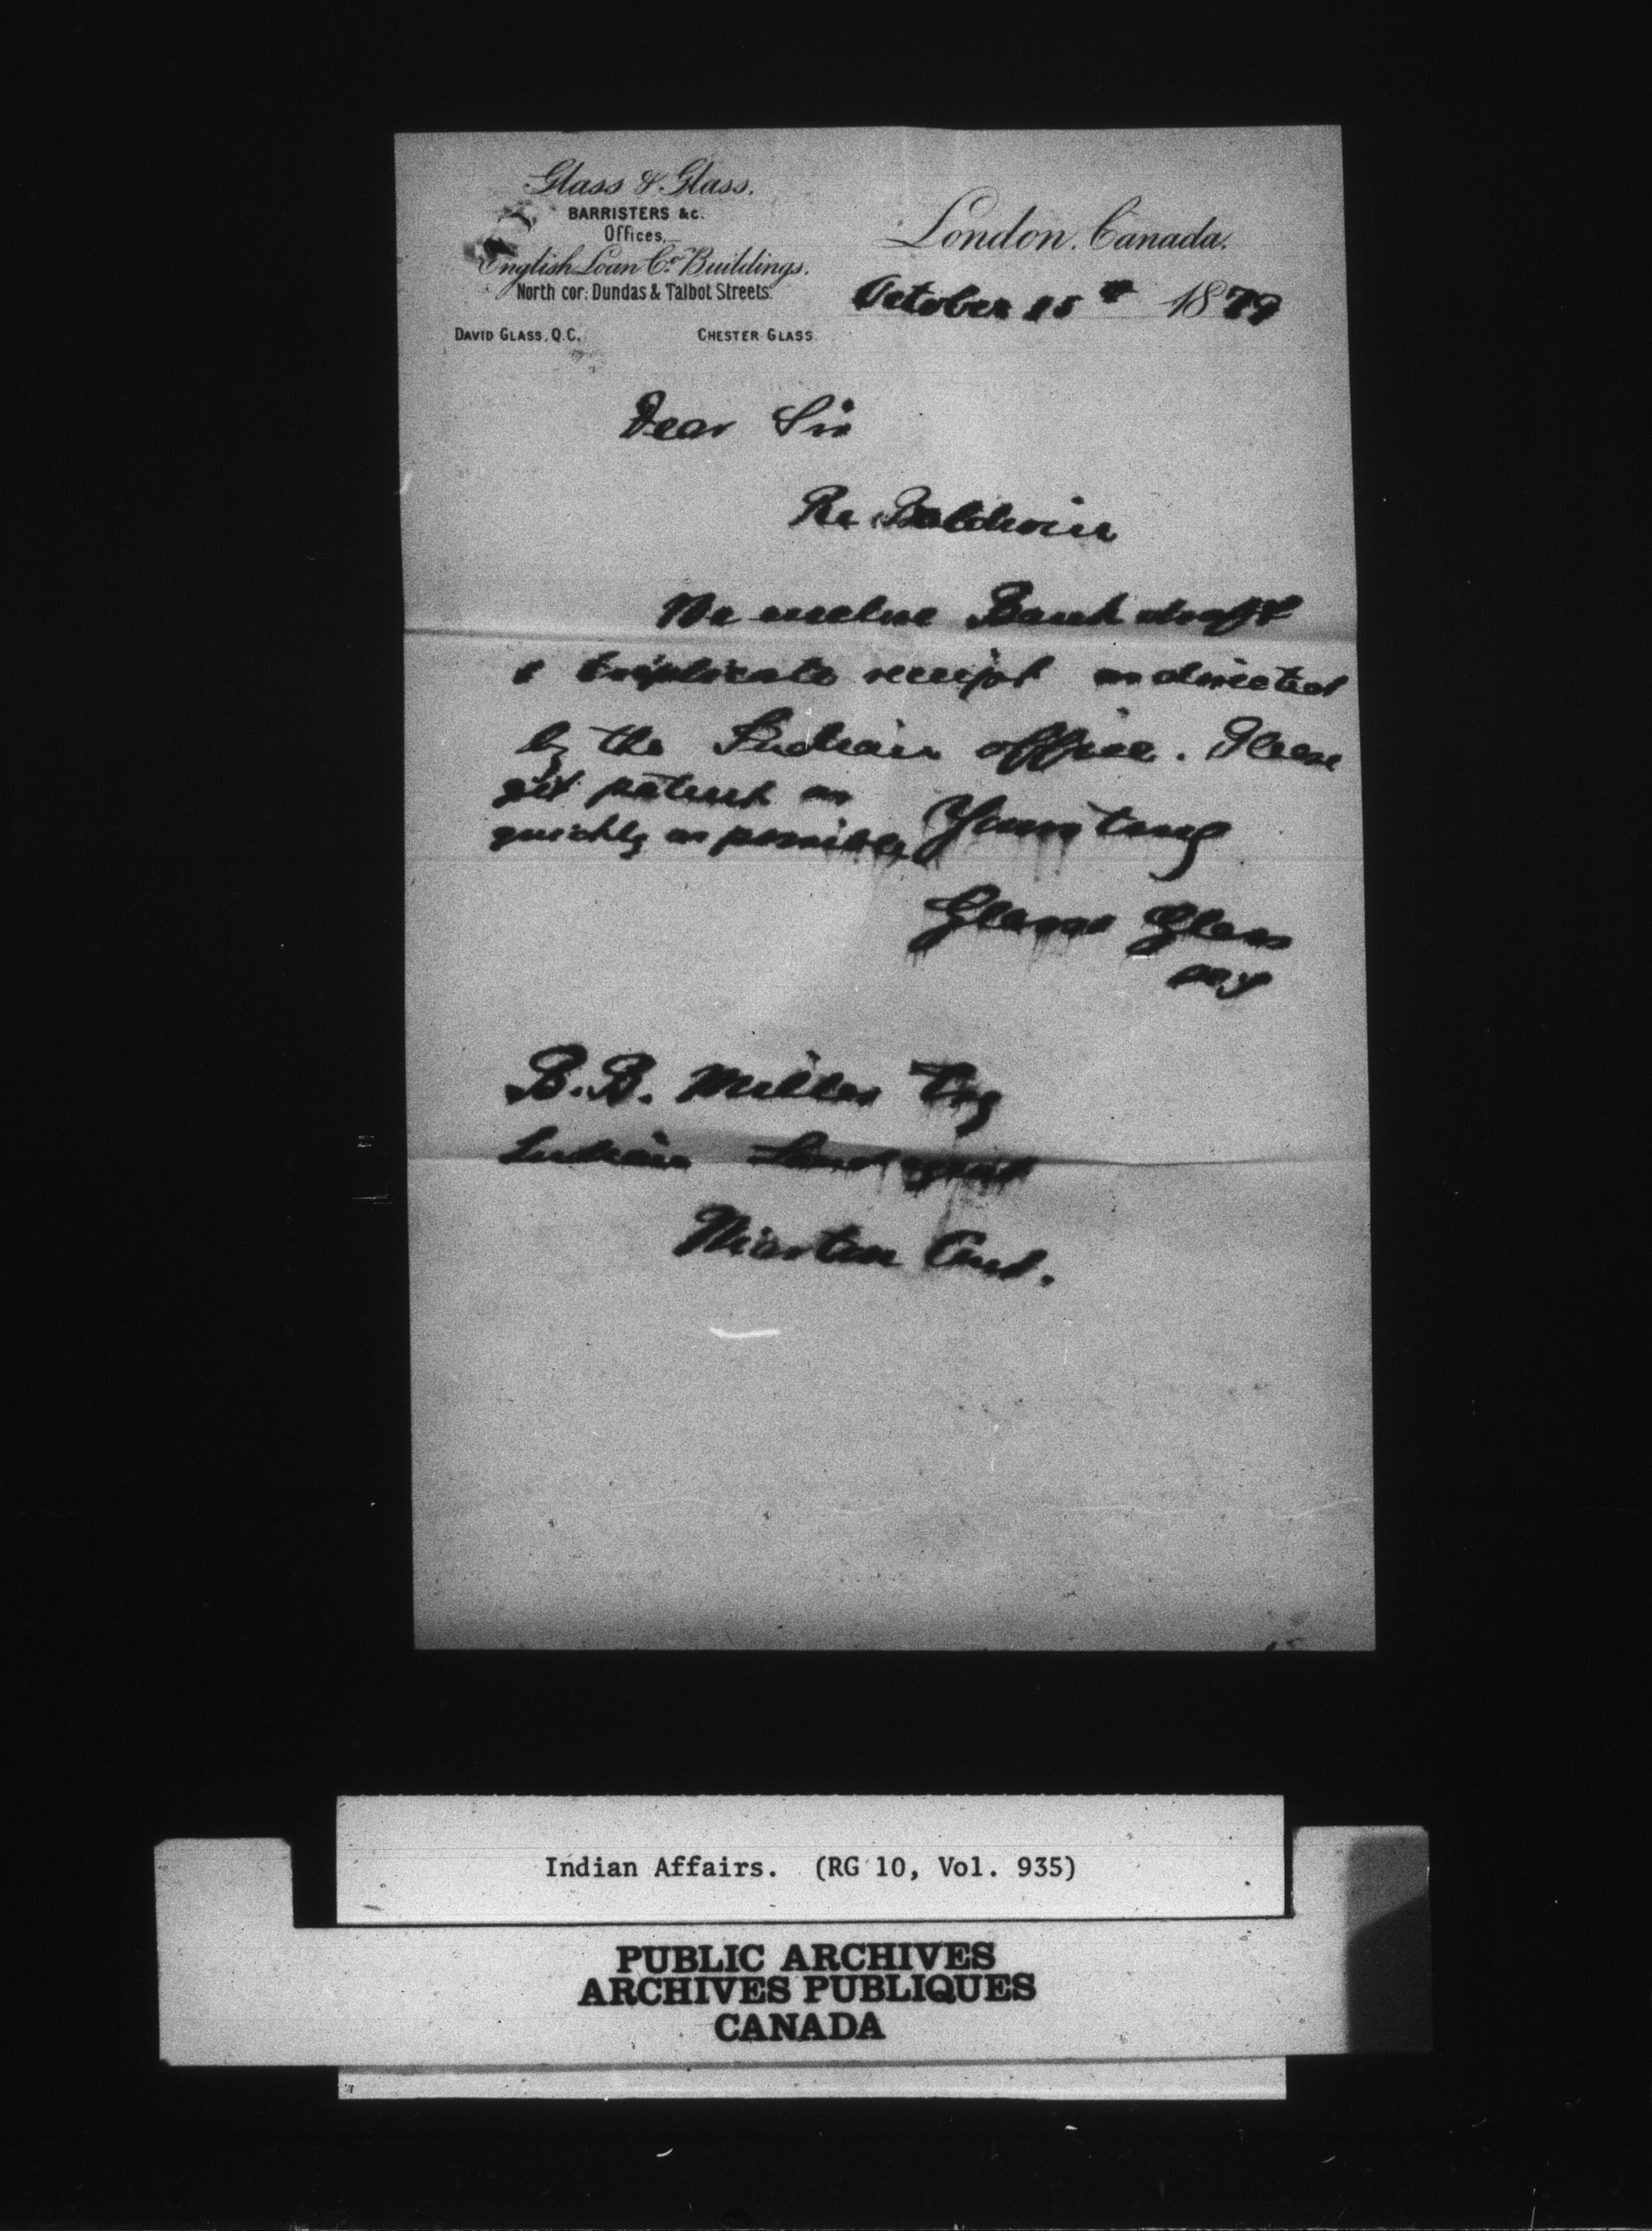 Glass & Glass.
BARRISTERS &c.
Offices,
English Loan Co. Buildings.
North cor: Dundas & Talbot Streets
DAVID GLASS, Q.C.
CHESTER GLASS
London, Canada,
October 15th 1879
Dear Sir
Re Baldwin
We enclose Bank draft
& triplicate receipt as directed
by the Indian office. Please
get patent as
quickly as possible
Yours truly
Glass & Glass
B.B. Miller Esq
Indian Land Agent
Wiarton Ont.
Indian Affairs. (RG 10, Vol. 935)
PUBLIC ARCHIVES
ARCHIVES PUBLIQUES
CANADA